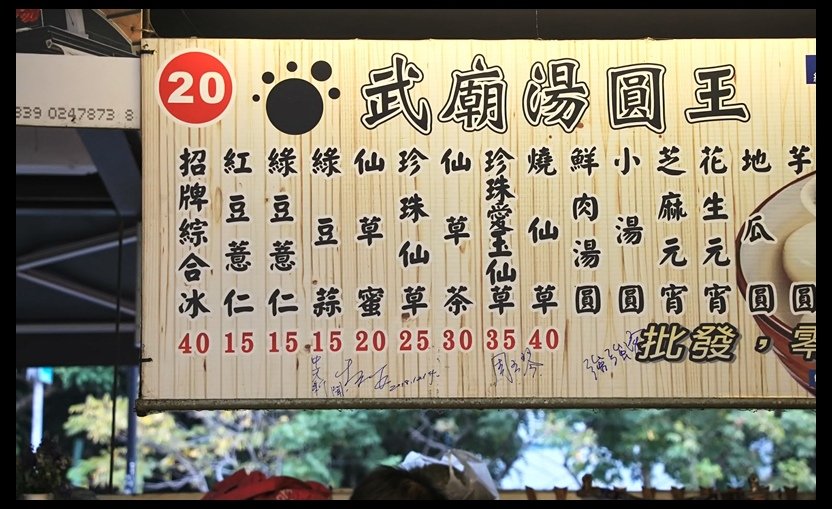 839 0247873 8
20
武廟湯圓王
招牌綜合冰 40
紅豆薏仁 15
綠豆薏仁 15
綠豆蒜 15
仙草蜜 20
珍珠仙草 25
仙草茶 30
珍珠愛玉仙草 35
燒仙草 40
鮮肉湯圓
小湯圓
芝麻元宵
花生元宵
地瓜圓
芋圓
批發，零